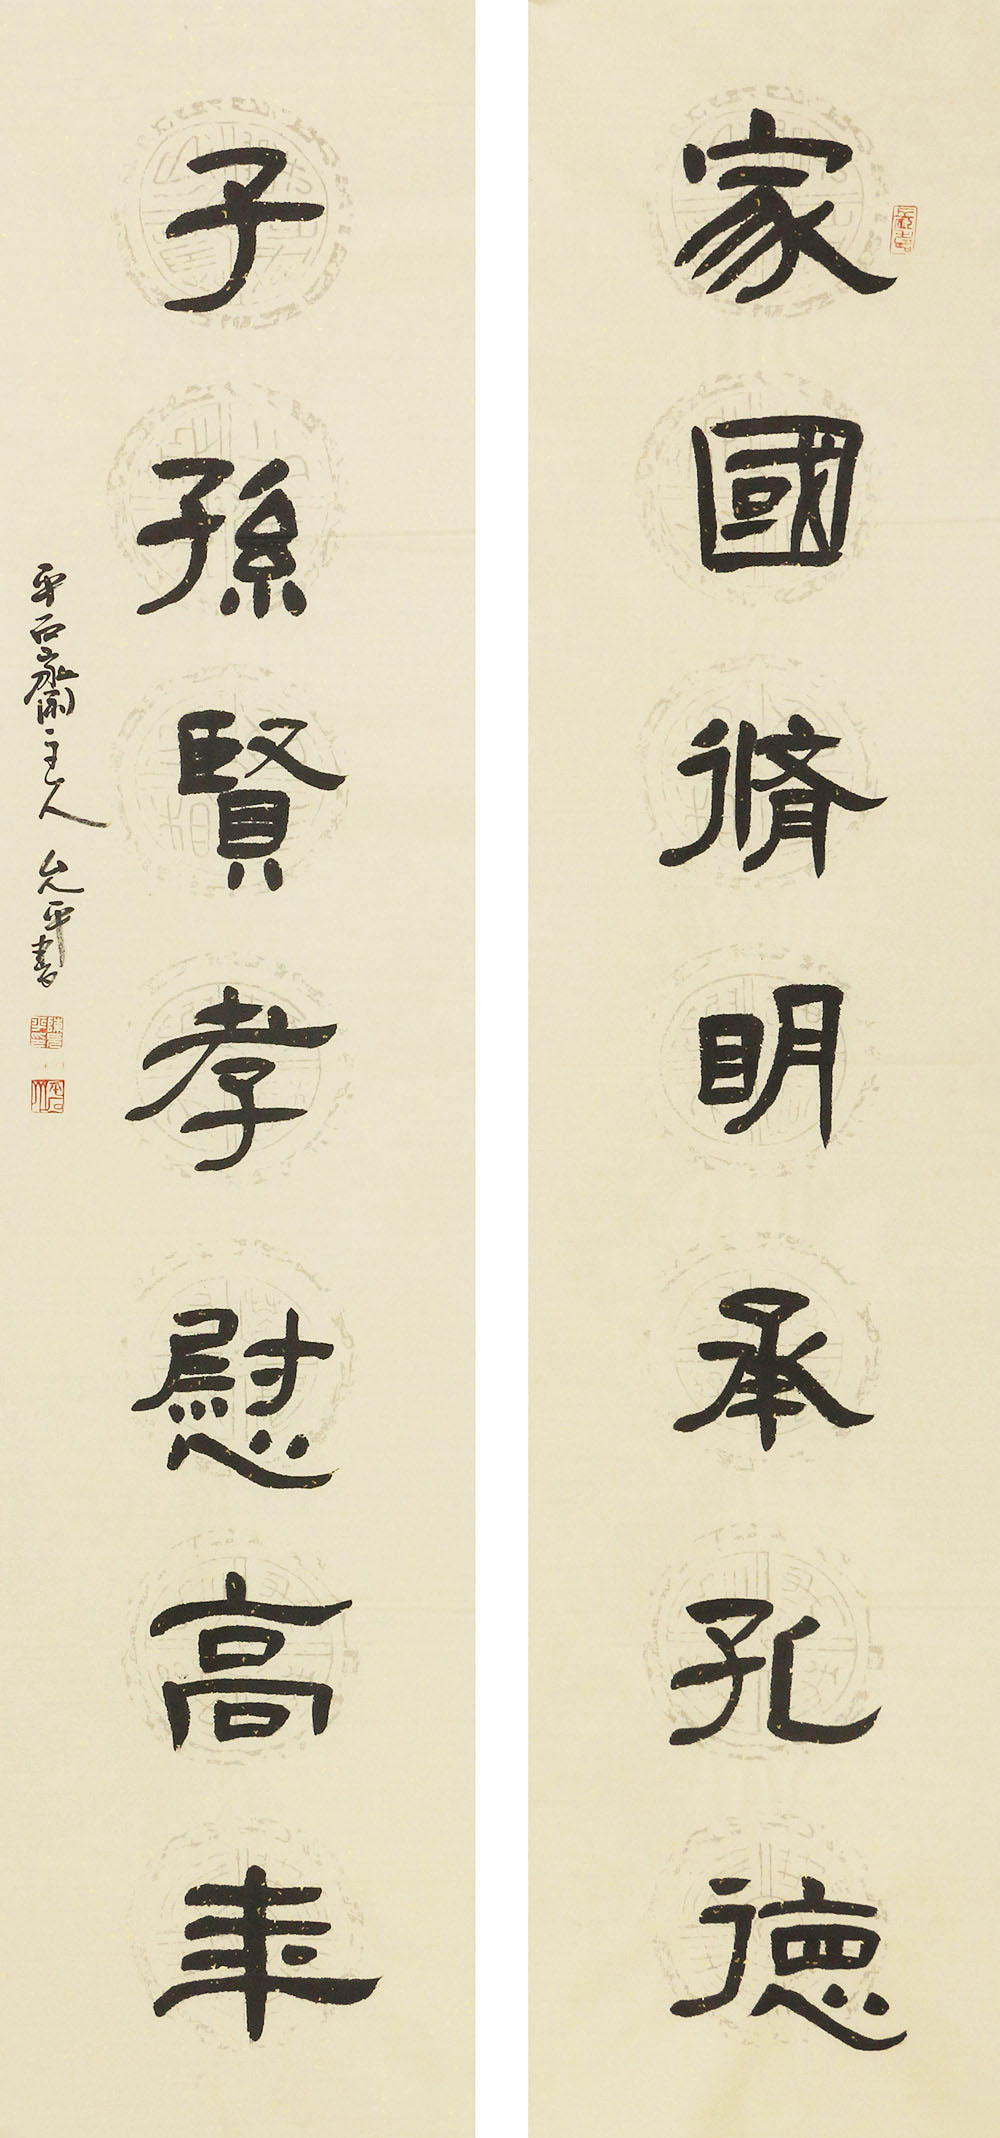 家國脩明承孔德
子孫賢孝慰高年
平石齋主人 允平書